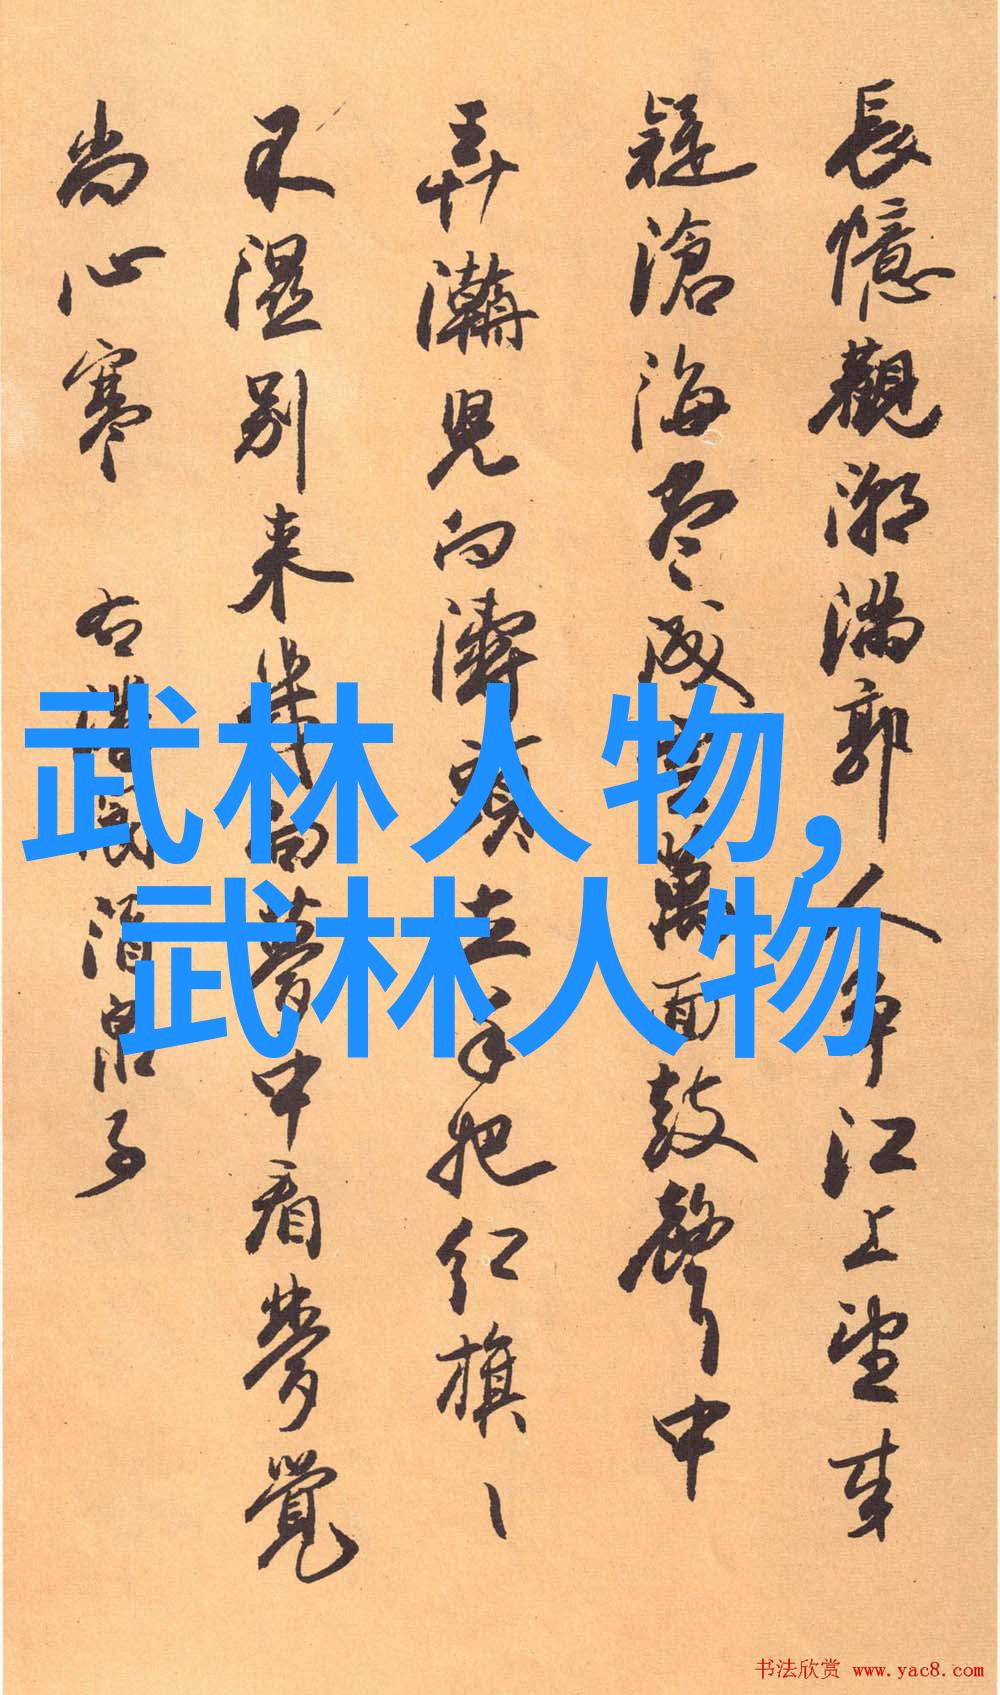 長憶觀潮滿郭人爭江上望来
疑滄海尽成空萬面鼓聲中
弄潮兒向濤頭立手把红旗ヽ
不湿别来幾向夢中看夢覺
尚心寒 右潘阆酒泉子
武林人物,
武林人物
书法欣赏 www.yac8.com